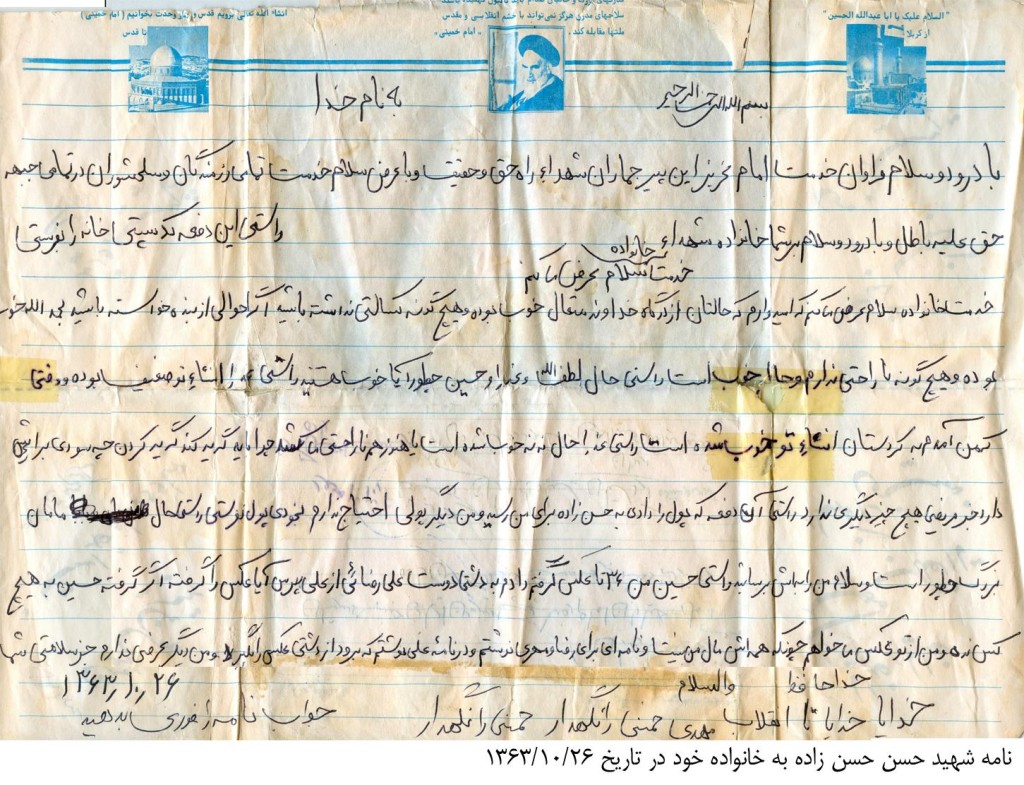 "السلام علیک یا ابا عبدالله الحسین"
از کربلا
سلاحهای مدرن هرگز نمی‌تواند با خشم انقلابی و مقدس
ملتها مقابله کند. «امام خمینی»
انشاء الله تعالی برویم قدس و نماز وحدت بخوانیم (امام خمینی)
تا قدس
بسم الله الرحمن الرحیم به نام خدا
با درود و سلام فراوان خدمت امام عزیز این پیر جماران شهداء راه حق و حقیقت و با عرض سلام خدمت تمامی رزمندگان و سلحشوران در تمامی جبهه
حق علیه باطل و با درود و سلام بر شما خانواده شهداء راستی این دفعه کد پستی خانه را نوشتی
خانواده
خدمت سلام عرض می‌کنم
خدمت خانواده سلام عرض می‌کنم که امیدوارم که حالتان از درگاه خداوند متعال خوب بوده و هیچ گونه کسالتی نداشته باشید اگر احوالی از بنده خواسته باشید بحمد الله خوب
بوده و هیچ گونه ناراحتی ندارم و حال خوب است راستی حال لطف الله و عذرا و حسین چطور آیا خوب هستید راستی عذرا انشاء تو ضعیف بوده و وقتی
که من آمدم به کردستان انشاء تو خوب شده است راستی عذرا حال ننه خوب شده است یا هنوز هم ناراحتی می‌کشد چرا باید گریه کند گریه کردن چه سودی برایش
دارد جز مریضی هیچ چیز دیگری ندارد راستی آن دفعه که پول را دادی به حسن زاده برای من رسید و من دیگر پولی احتیاج ندارم پول نفرستی راستی حال مامان
بزرگ چطور است و سلام من را به ایش برسانید راستی حسین من ۳۶ تا عکس گرفتم دادم به دوست علی رضائی از علی بپرس آیا عکس را گرفته اگر گرفته حسین به هیچ
کس نده و من از تو عکس می‌خواهم چونکه همه‌اش مال من نیست و نامه‌ای برای رضا نوشتم و در نامه علی نوشتم که برود از عکس را بگیرد و من دیگر عرضی ندارم جز سلامتی شما
خداحافظ والسلام ۱۳۶۳/۱۰/۲۶
خدایا خدایا تا انقلاب مهدی خمینی را نگهدار خمینی را نگهدار جواب نامه را فوری بدهید
نامه شهید حسن حسن زاده به خانواده خود در تاریخ ۱۳۶۳/۱۰/۲۶